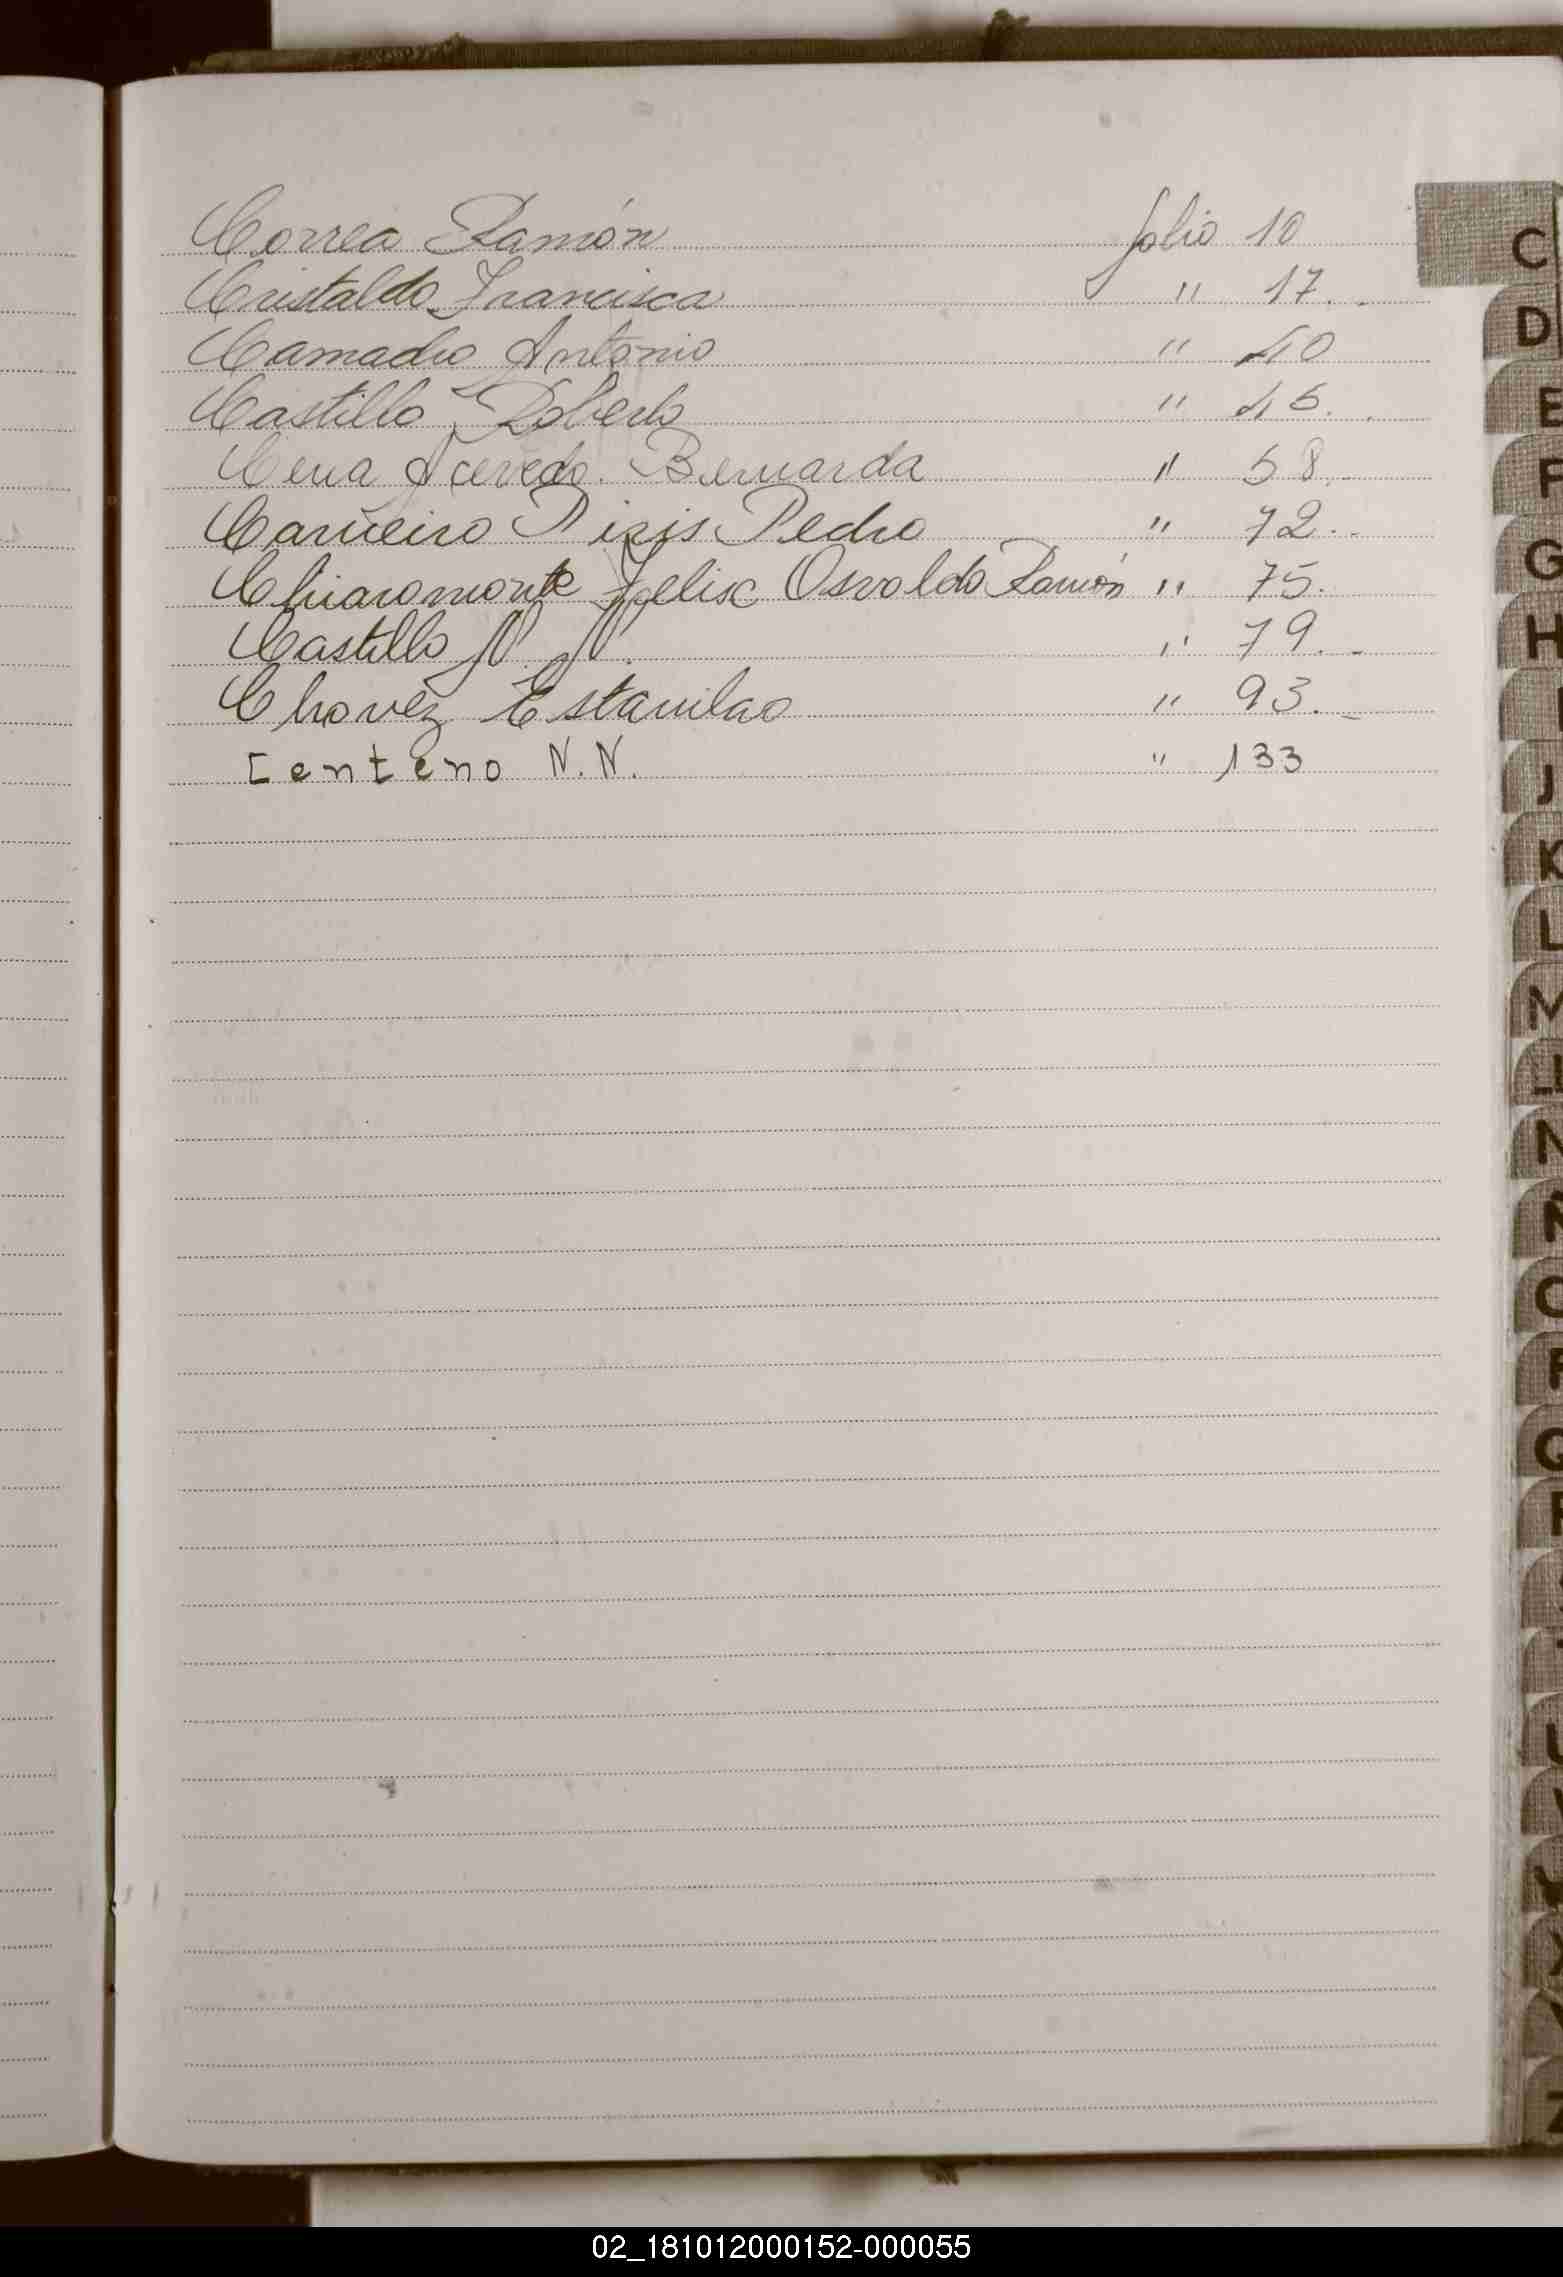 Correa Ramón folio 10
Cristaldo Francisca " 17.-
Camacho Antonio " 40
Castillo Roberto " 45.
Cena Acevedo Bernarda " 58.-
Carneiro Piris Pedro " 72.-
Chiaromonte Felix Osvaldo Ramón " 75.
Castillo N. N. " 79.-
Chavez Estanilao " 93.-
Centeno N.N. " 133
C
D
E
F
G
H
I
J
K
L
M
N
O
P
Q
R
U
V
X
Z
02_181012000152-000055